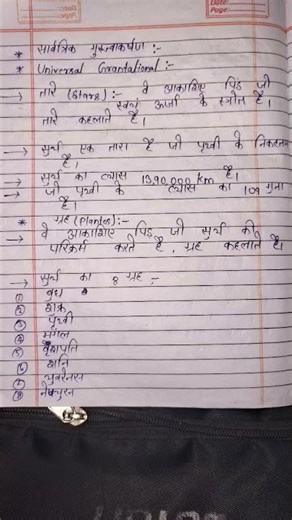 Date:
Page:
* सार्वत्रिक गुरुत्वाकर्षण :-
* Universal Grantational :-
→ तारे (Stars) :- वे आकाशिए पिंड जो
स्वयं ऊर्जा के स्त्रोत है।
तारे कहलाते है।
→ सुर्य एक तारा है जो पृथ्वी के निकटतम
है।
→ सुर्य का व्यास 13,90,000 km है।
→ जो पृथ्वी के व्यास का 109 गुना
है।
* ग्रह (Plantes) :-
→ वे आकाशिए पिंड जो सुर्य की
परिक्रमा करते है, ग्रह कहलाते है।
→ सुर्य का 8 ग्रह :-
① बुध
② शुक्र
③ पृथ्वी
④ मंगल
⑤ बृहस्पति
⑥ शनि
⑦ युवरेनस
⑧ नेप्चुरन